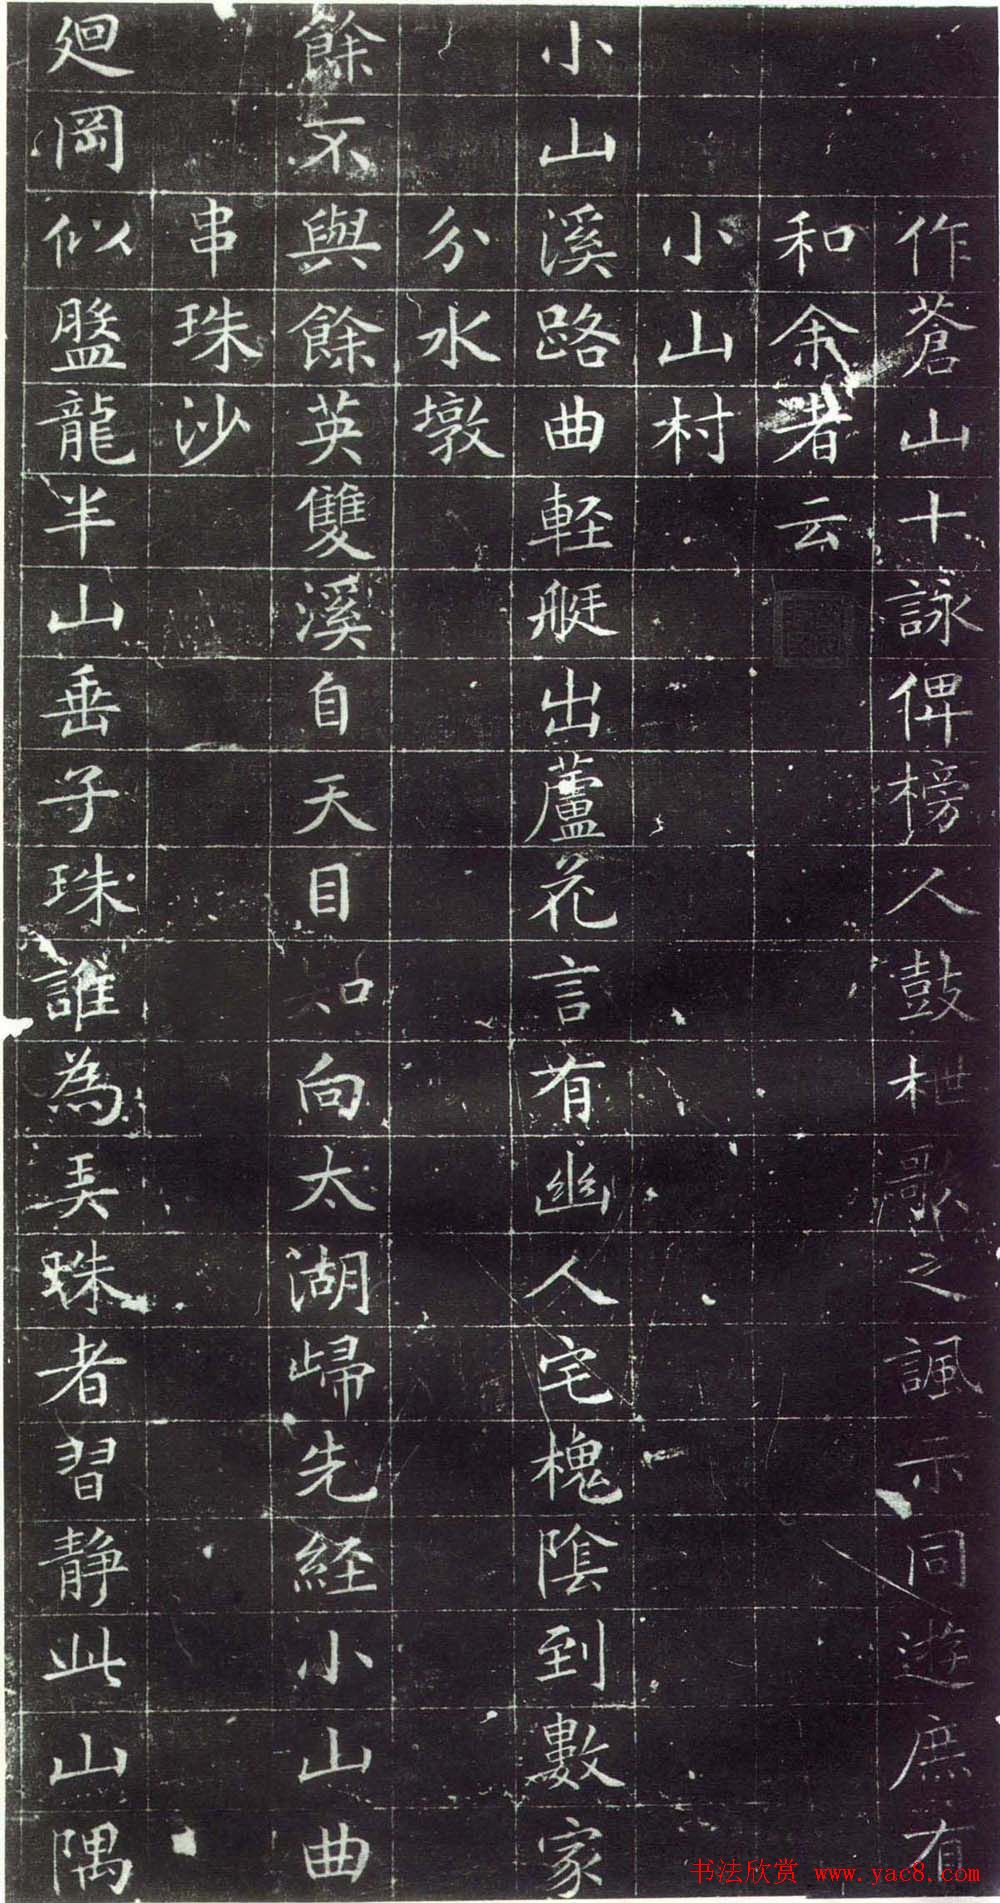 作蒼山十詠俾榜人鼓枻歌之諷示同遊庶有
和余者云
小山村
小山溪路曲軽艇出蘆花言有幽人宅槐陰到數家
分水墩
餘不與餘英雙溪自天目知向太湖歸先経小山曲
串珠沙
廻岡似盤龍半山垂子珠誰為弄珠者習静此山隅
书法欣赏 www.yac8.com